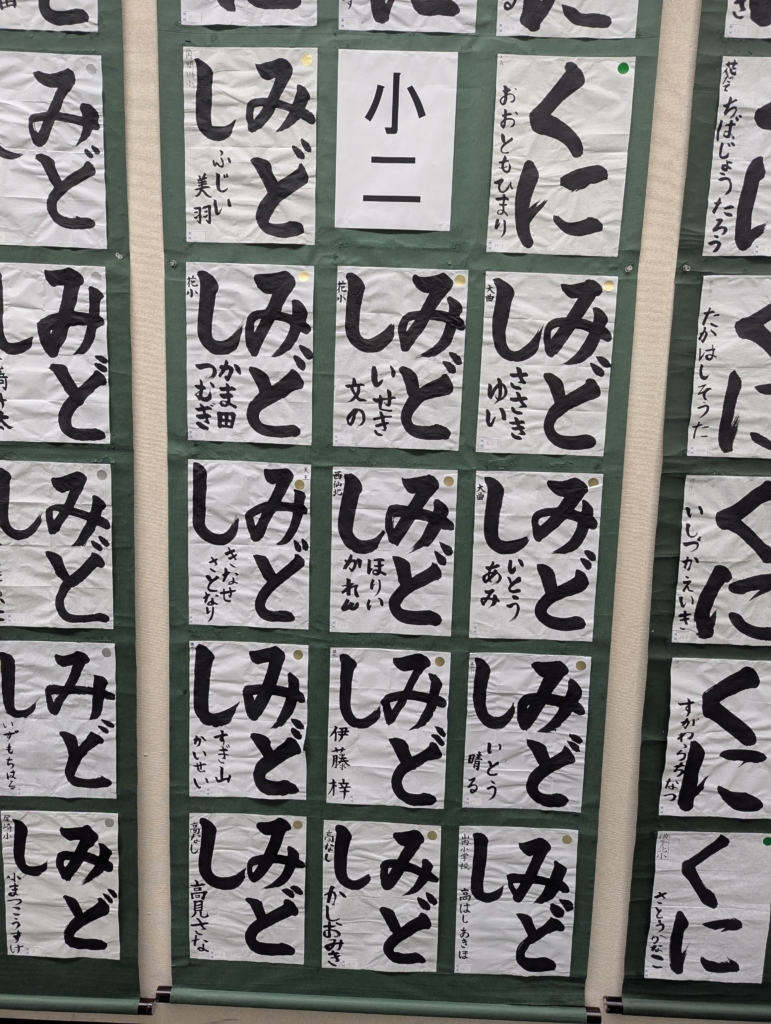 くに
花館
ちばじょうたろう
くに
たかはしそうた
くに
いしづかえいき
くに
すがわらなつ
くに
さとうかなこ
くに
おおともひまり
小二
みど
し
ふじい
美羽
みど
し
大曲
ささき
ゆい
みど
し
いせき
文の
みど
し
花小
かま田
つむぎ
みど
し
大曲
いとう
あみ
みど
し
西仙北
ほりい
かれん
みど
し
きなせ
さとなり
みど
し
いとう
晴る
みど
し
伊藤梓
みど
し
すぎ山
かいせい
みど
し
高はしあきほ
みど
し
高なし
かしおみき
みど
し
高なし
高見さな
みど
みど
し
みど
し
みど
し
いずもちはる
みど
し
小まつこうすけ